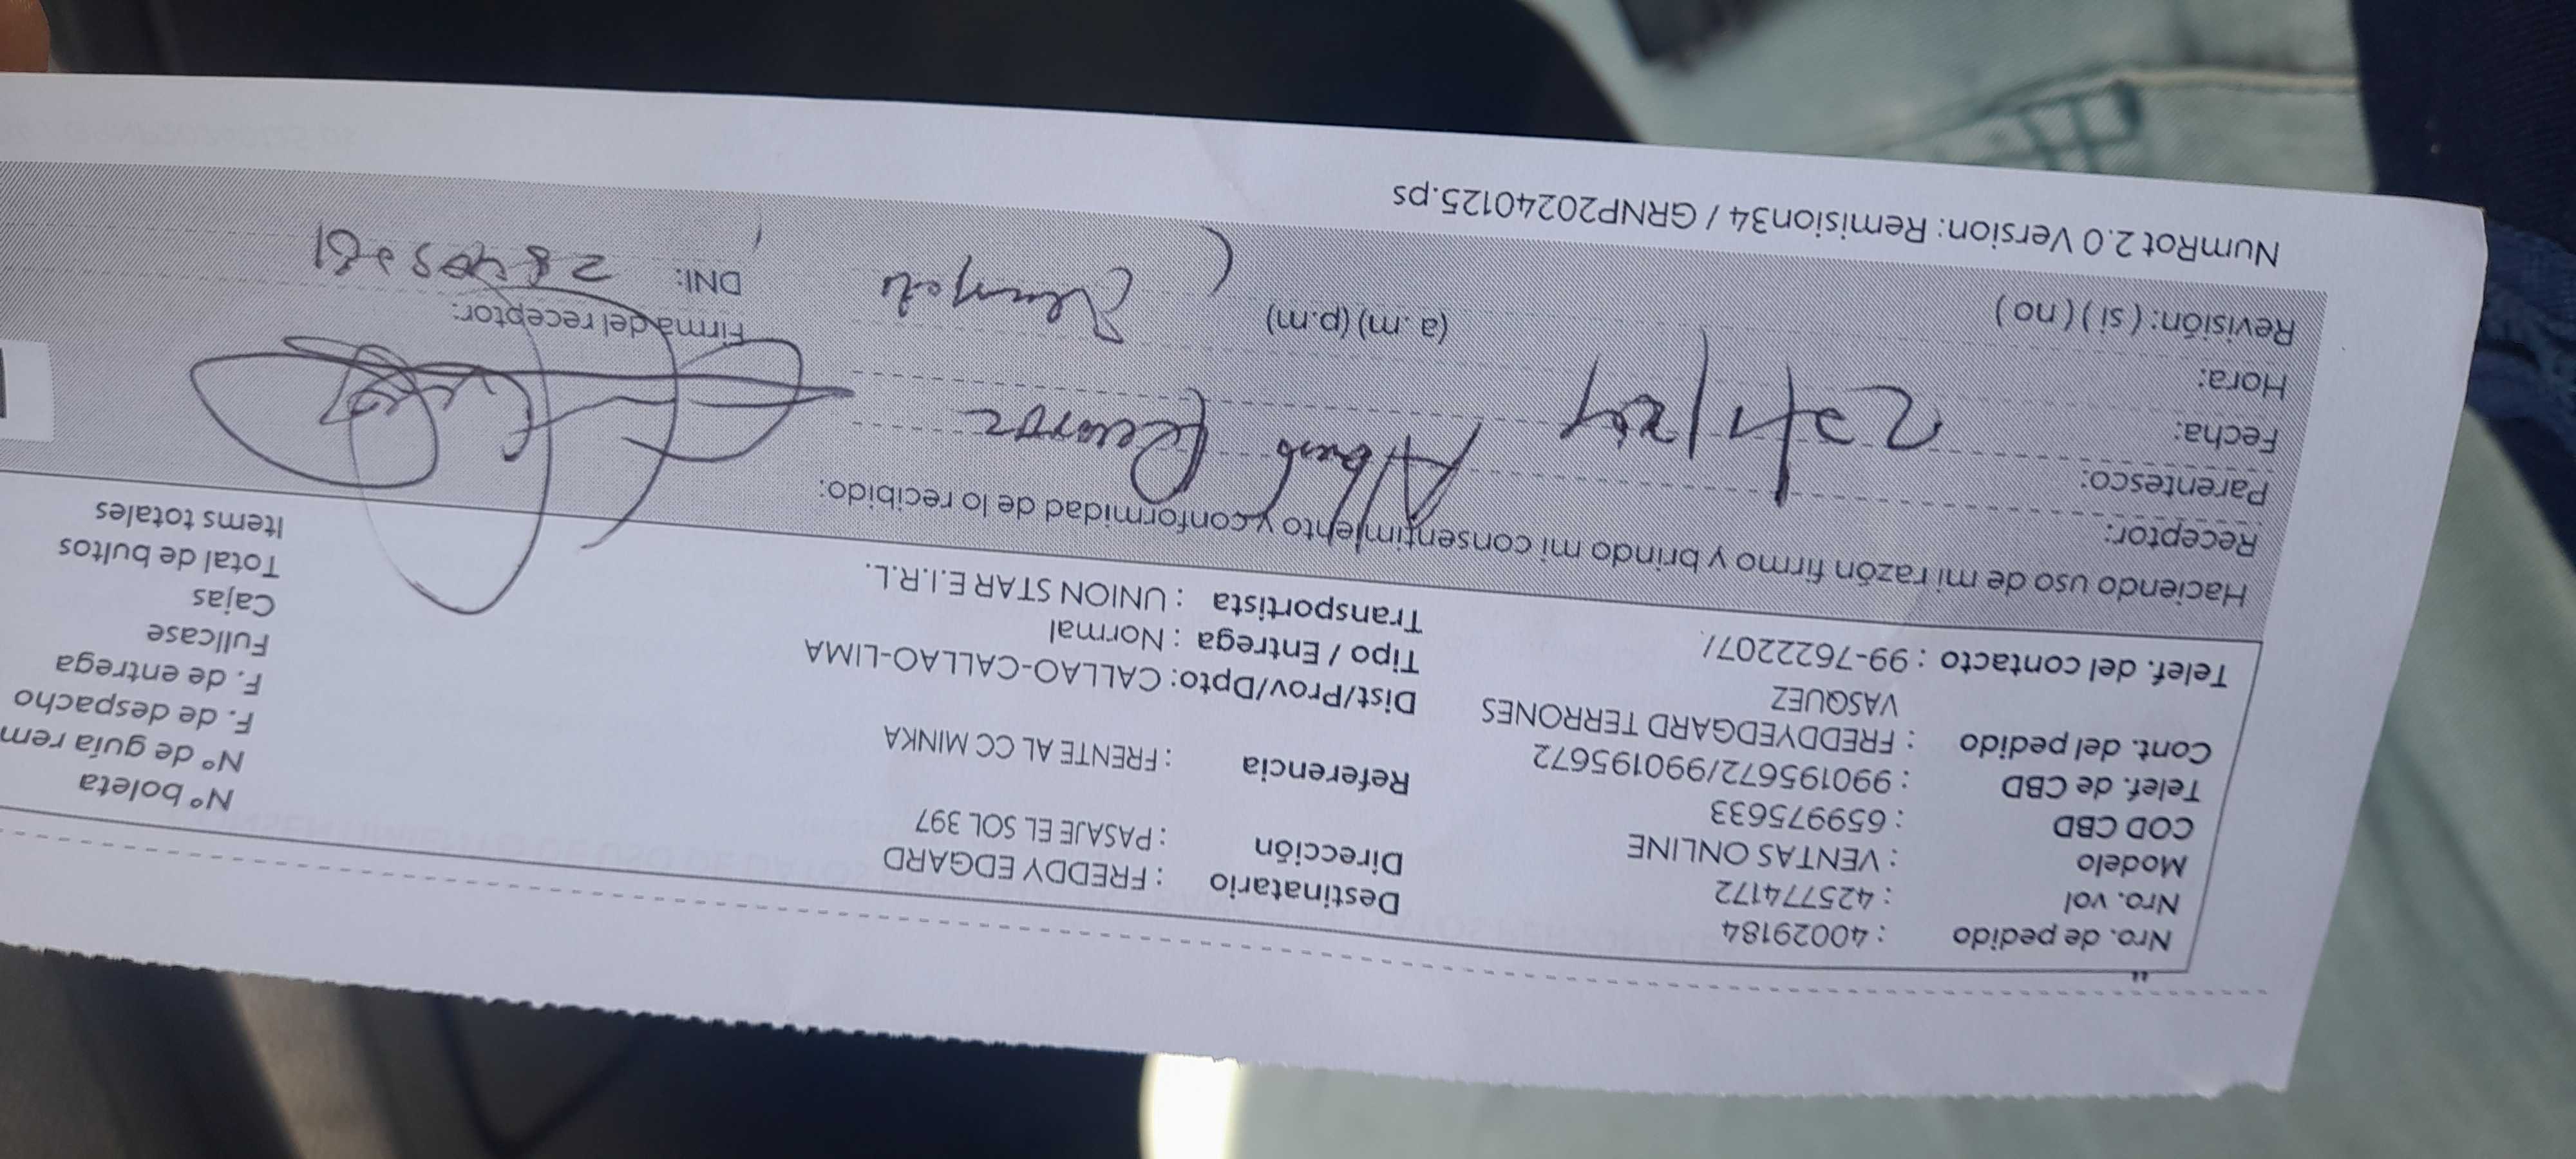 Nro. de pedido : 40029184
Nro. vol : 425774172
Modelo : VENTAS ONLINE
COD CBD : 659975633
Telef. de CBD : 990195672/990195672
Cont. del pedido : FREDDYEDGARD TERRONES
VASQUEZ
Telef. del contacto : 99-7622207/
Destinatario : FREDDY EDGARD
Dirección : PASAJE EL SOL 397
Referencia : FRENTE AL CC MINKA
Dist/Prov/Dpto: CALLAO-CALLAO-LIMA
Tipo / Entrega : Normal
Transportista : UNION STAR E.I.R.L.
N° boleta
N° de guía rem
F. de despacho
F. de entrega
Fullcase
Cajas
Total de bultos
Items totales
Haciendo uso de mi razón firmo y brindo mi consentimiento y conformidad de lo recibido:
Receptor:
Parentesco:
Fecha:
Hora: (a.m) (p.m)
Revisión: ( si ) ( no )
Firma del receptor:
DNI:
NumRot 2.0 Version: Remision34 / GRNP20240125.ps